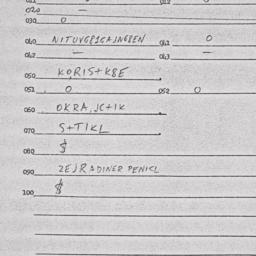 020 —
030 O
040 NITUVGPICAJNGBEN 041 O
042 — 043 —
050 KORIS+KBE
051 O 052 O
060 OKRA.JC+IK
070 S+TIKL
080 $
090 ZEJRADINER PENICL
100 $